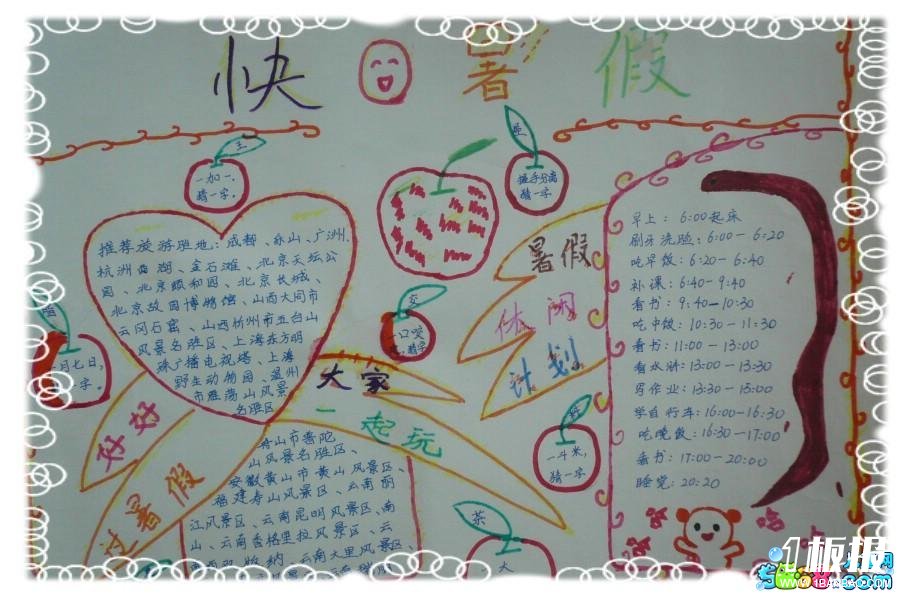 快 暑假
王
一加一，
猜一字。
握手分离
猜一字。
推荐旅游胜地：成都、乐山、广州、
杭州西湖、金石滩、北京天坛公
园、北京颐和园、北京长城、
北京故园博物馆、山西大同市
云冈石窟、山西忻州市五台山
风景名胜区、上海东方明
珠广播电视塔、上海
野生动物园、温州
市雁荡山风景
名胜区
暑假
休闲
计划
早上：6:00起床
刷牙洗脸：6:00-6:20
吃早饭：6:20-6:40
补课：6:40-9:40
看书：9:40-10:30
吃中饭：10:30-11:30
看书：11:00-13:00
看水浒：13:00-13:30
写作业：13:30-15:00
学自行车：16:00-16:30
吃晚饭：16:30-17:00
看书：17:00-20:00
睡觉：20:20
月七日，
一字。
大家
一起玩
好好
过暑假
一斗米，
猜一字。
舟山市普陀
山风景名胜区、
安徽黄山市黄山风景区、
福建寿山风景区、云南丽
江风景区、云南昆明风景区、南
山、云南香格里拉风景区、云
纳、云南大里风景区、
风景区、云南
茶
大
哈
1板报
WWW.1BANBAO.COM